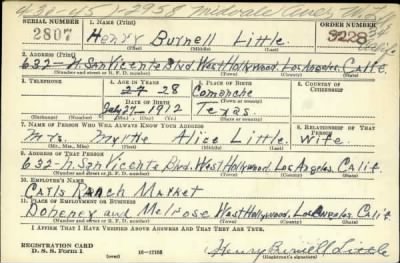 SERIAL NUMBER 1. NAME (Print) ORDER NUMBER
2807 Henry Burnell Little 3228
(First) (Middle) (Last)
2. ADDRESS (Print)
632-N. San Vicente Blvd. West Hollywood. Los Angeles. Calif.
(Number and street or R. F. D. number) (Town) (County) (State)
3. TELEPHONE 4. AGE IN YEARS 5. PLACE OF BIRTH 6. COUNTRY OF CITIZENSHIP
27 28 Comanche
DATE OF BIRTH (Town or county)
July 27 1912 Texas.
(Exchange) (No.) (Mo.) (Day) (Yr.) (State or country)
7. NAME OF PERSON WHO WILL ALWAYS KNOW YOUR ADDRESS 8. RELATIONSHIP OF THAT PERSON
Mrs. Alice Little. Wife
(Mr., Mrs., Miss) (First) (Middle) (Last)
9. ADDRESS OF THAT PERSON
632-N. San Vicente Blvd. West Hollywood. Los Angeles. Calif.
(Number and street or R. F. D. number) (Town) (County) (State)
10. EMPLOYER'S NAME
Carls Ranch Market
11. PLACE OF EMPLOYMENT OR BUSINESS
Doheney and Melrose West Hollywood. Los Angeles. Calif
(Number and street or R. F. D. number) (Town) (County) (State)
I AFFIRM THAT I HAVE VERIFIED ABOVE ANSWERS AND THAT THEY ARE TRUE.
REGISTRATION CARD
D. S. S. Form 1 (over) Henry Burnell Little
(Registrant's signature)